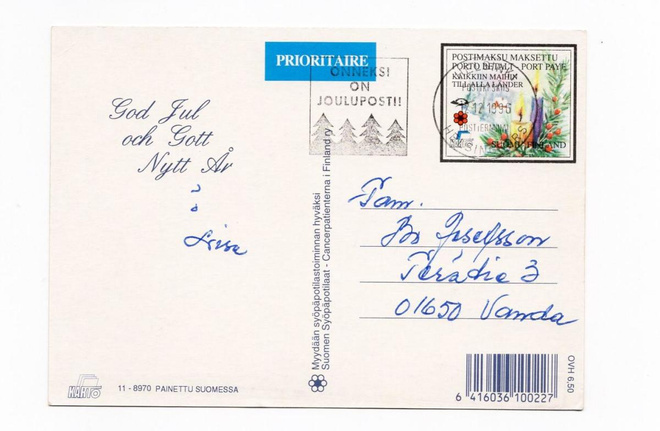 PRIORITAIRE
ONNEKSI
ON
JOULUPOSTI!
POSTIMAKSU MAKSETTU
PORTO BETALT - PORT PAYÉ
KAIKKIIN MAIHIN
TILL ALLA LÄNDER
12.1996
SUOMI FINLAND
God Jul
och Gott
Nytt År
Fam.
Bo Josefsson
3
01650 Vanda
Myydään syöpäpotilastoiminnan hyväksi
Suomen Syöpäpotilaat - Cancerpatienterna i Finland ry
KARTO
11 - 8970 PAINETTU SUOMESSA
OVH 6,50
6 416036 100227